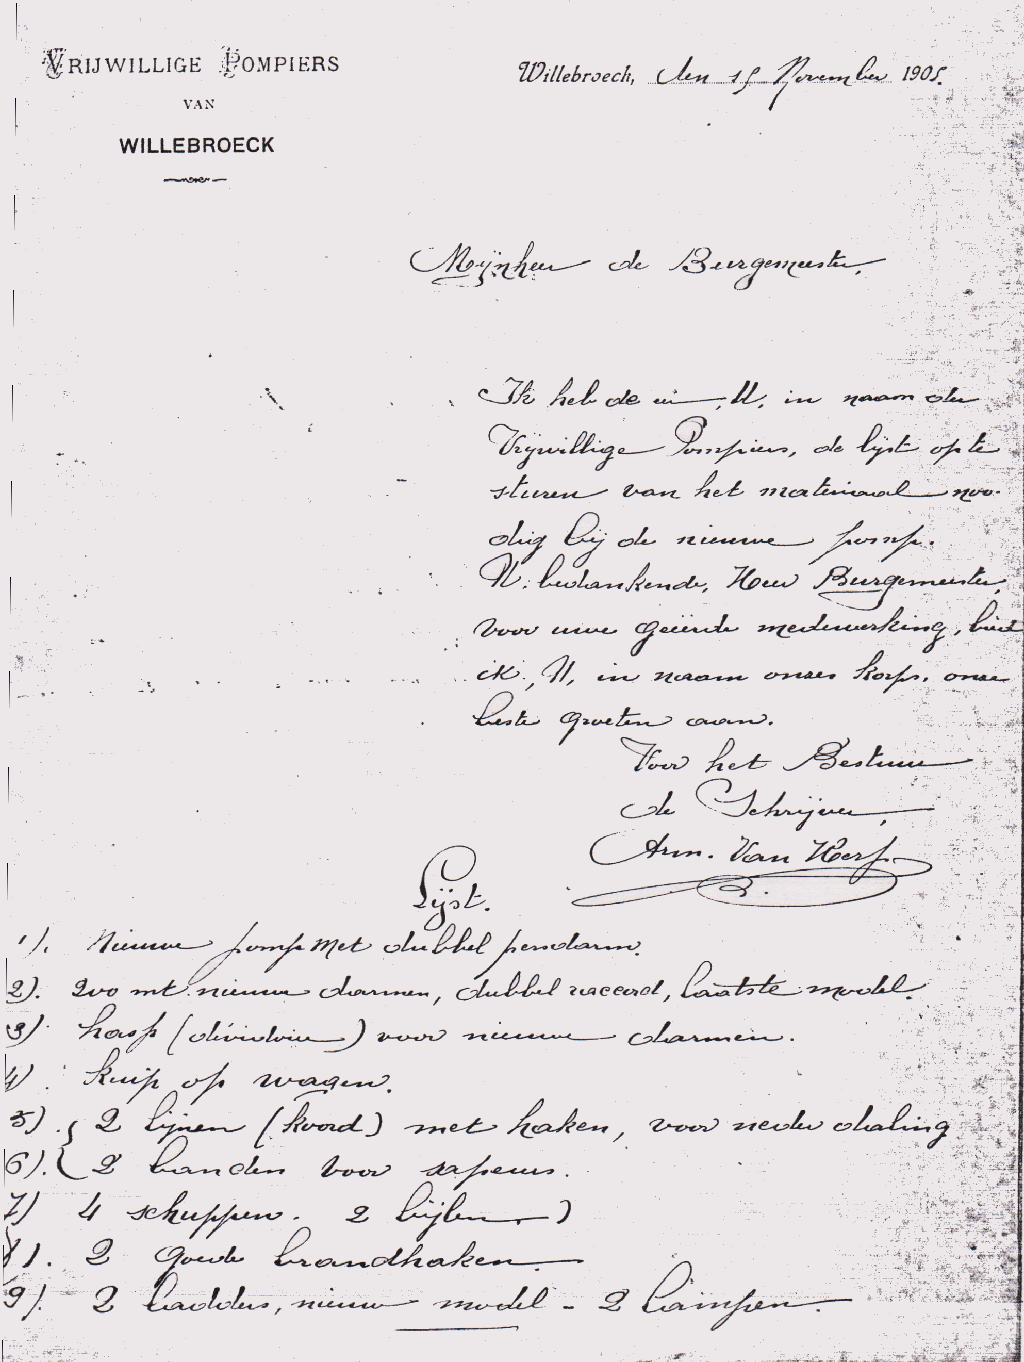 VRIJWILLIGE POMPIERS
VAN
WILLEBROECK
Willebroeck, den 15 November 1905.
Mijnheer de Burgemeester,
Ik heb de eer, U, in naam der
Vrijwillige Pompiers, de lijst op te
sturen van het materiaal noo-
dig bij de nieuwe pomp.
U bedankende, Heer Burgemeester,
voor uwe geëerde medewerking, bied
ik, U, in naam onzes korps, onze
beste groeten aan.
Voor het Bestuur
de Schrijver,
Arm. Van Herp
Lijst.
1). Nieuwe pomp met dubbel pendarm.
2). 200 mt. nieuwe darmen, dubbel raccord, laatste model.
3) hasp (dévidoir) voor nieuwe darmen.
4) kuip op wagen.
5). 2 lijnen (koord) met haken, voor nederdaling
6). 2 banden voor sapeurs.
7) 4 schuppen. 2 bijlen)
8). 2 goede brandhaken.
9). 2 ladders, nieuw model - 2 lampen.